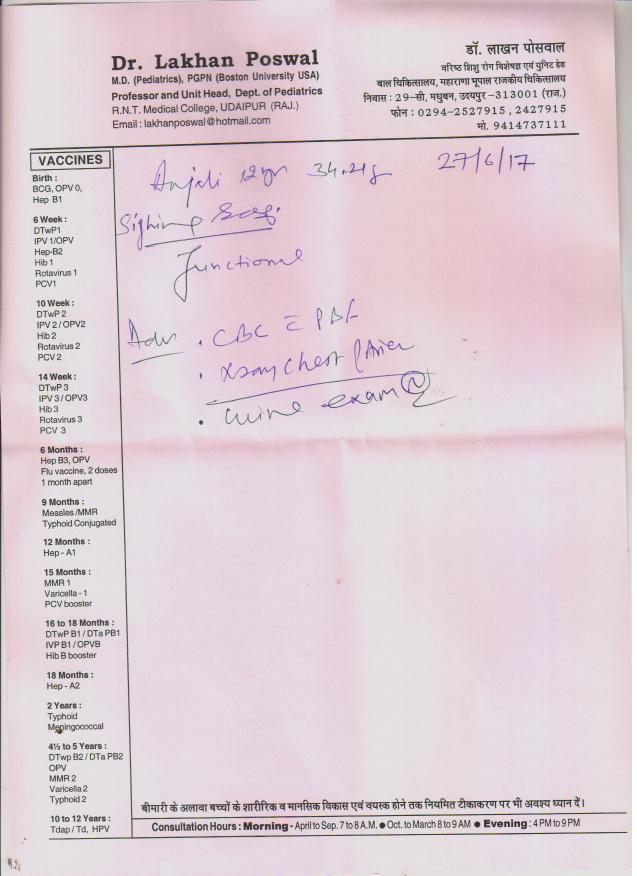 Dr. Lakhan Poswal
M.D. (Pediatrics), PGPN (Boston University USA)
Professor and Unit Head, Dept. of Pediatrics
R.N.T. Medical College, UDAIPUR (RAJ.)
Email : lakhanposwal@hotmail.com
डॉ. लाखन पोसवाल
वरिष्ठ शिशु रोग विशेषज्ञ एवं युनिट हेड
बाल चिकित्सालय, महाराणा भूपाल राजकीय चिकित्सालय
निवास : 29-सी, मधुबन, उदयपुर-313001 (राज.)
फोन : 0294-2527915, 2427915
मो. 9414737111
VACCINES
Birth :
BCG, OPV 0,
Hep B1
6 Week :
DTwP1
IPV 1/OPV
Hep-B2
Hib 1
Rotavirus 1
PCV1
10 Week :
DTwP 2
IPV 2 / OPV2
Hib 2
Rotavirus 2
PCV 2
14 Week :
DTwP 3
IPV 3 / OPV3
Hib 3
Rotavirus 3
PCV 3
6 Months :
Hep B3, OPV
Flu vaccine, 2 doses
1 month apart
9 Months :
Measles /MMR
Typhoid Conjugated
12 Months :
Hep - A1
15 Months :
MMR 1
Varicella - 1
PCV booster
16 to 18 Months :
DTwP B1 / DTa PB1
IVP B1 / OPVB
Hib B booster
18 Months :
Hep - A2
2 Years :
Typhoid
Meningococcal
4½ to 5 Years :
DTwp B2 / DTa PB2
OPV
MMR 2
Varicella 2
Typhoid 2
10 to 12 Years :
Tdap / Td, HPV
Anjali 12yr 34.21g 27/6/17
Sighing
Functional
Adv . CBC PBF
. Xray Chest
. urine exam (N)
बीमारी के अलावा बच्चों के शारीरिक व मानसिक विकास एवं वयस्क होने तक नियमित टीकाकरण पर भी अवश्य ध्यान दें।
Consultation Hours : Morning - April to Sep. 7 to 8 A.M. ● Oct. to March 8 to 9 AM ● Evening : 4 PM to 9 PM